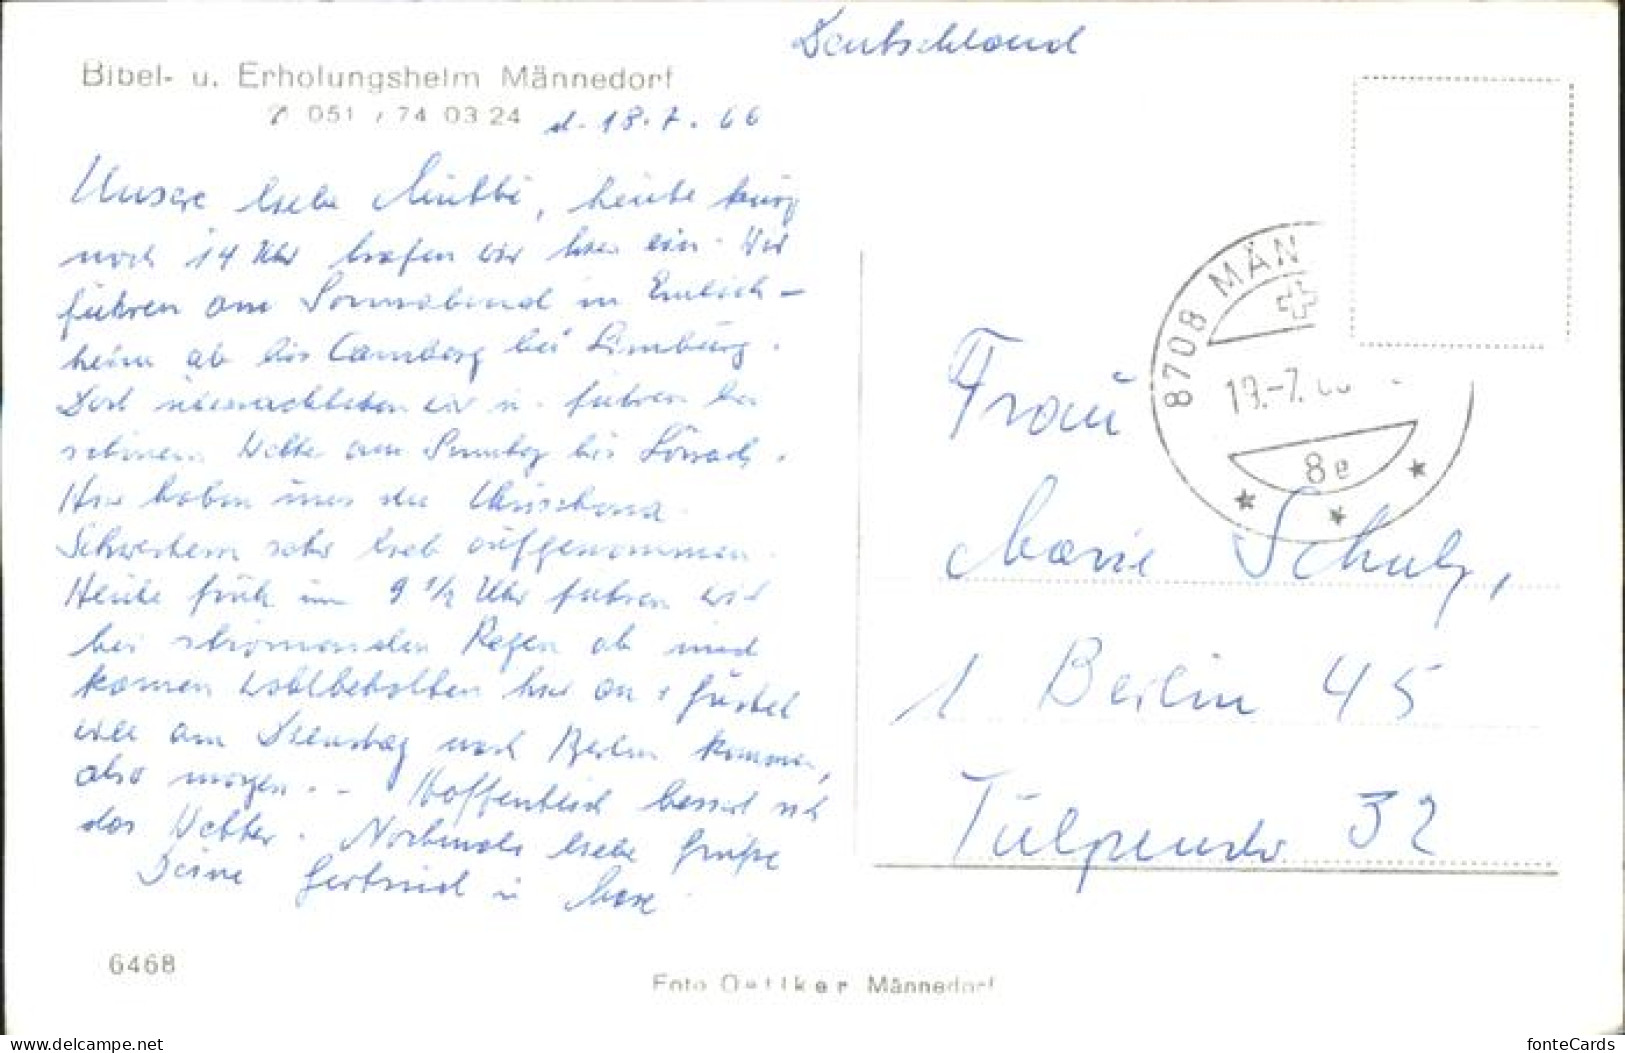 Deutschland
Bibel- u. Erholungsheim Männedorf
051 / 74 03 24
d. 18.7.66
Unsere liebe Mutti, heute kurz
nach 14 Uhr trafen wir hier ein. Wir
fuhren am Sonnabend in
heim ab bis Camberg bei Limburg.
Dort übernachteten wir u. fuhren bei
schönem Wetter am Sonntag bis Lörrach.
Hier haben uns die
Schwestern sehr lieb aufgenommen.
Heute früh um 9 1/2 Uhr fuhren wir
bei strömenden Regen ab und
kamen wohlbehalten hier an.
will am Dienstag nach Berlin kommen,
also morgen. - Hoffentlich bessert sich
das Wetter. Nochmals liebe Grüße
Deine Gertrud u.
8708 MÄN
19.-7.66
8e
Frau
Marie Schulz,
1 Berlin 45
Tulpenstr 32
6468
Foto Oetiker Männedorf
www.delcampe.net
fonteCards